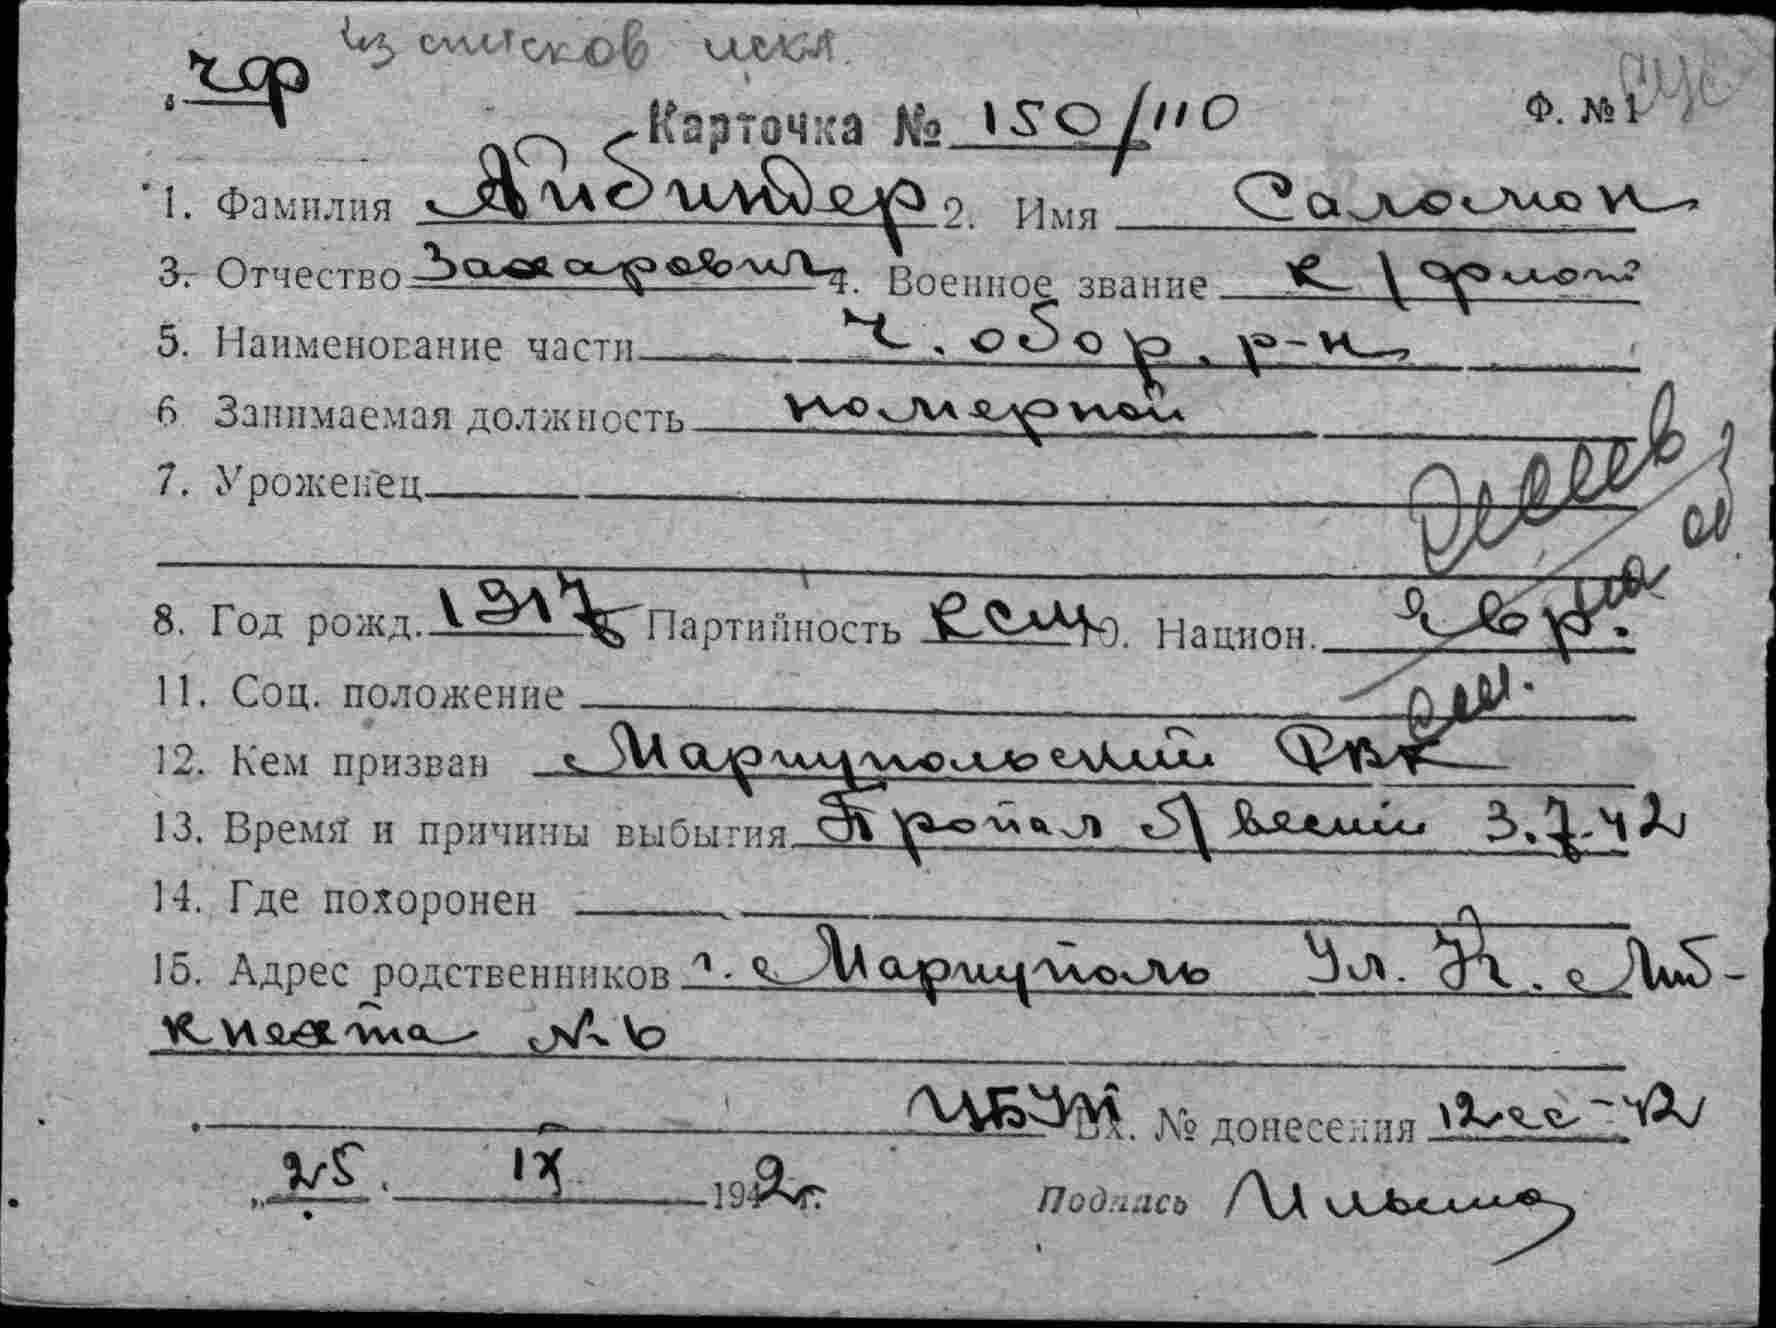 из списков искл.
чф
Карточка № 150/110 Ф. № 1
1. Фамилия Айбиндер 2. Имя Саломон
3. Отчество Захарович 4. Военное звание к/флот
5. Наименование части ч. обор. р-н
6 Занимаемая должность номерной
7. Уроженец
8. Год рожд. 1917 Партийность КСМ 10. Национ. евр.
11. Соц. положение
12. Кем призван Мариупольский РВК
13. Время и причины выбытия Пропал б/вести 3.7.42
14. Где похоронен
15. Адрес родственников г. Мариуполь Ул. К. Либ-
кнехта № 6
Вх. № донесения 12сс-42
„25. IX 1942г. Подпись